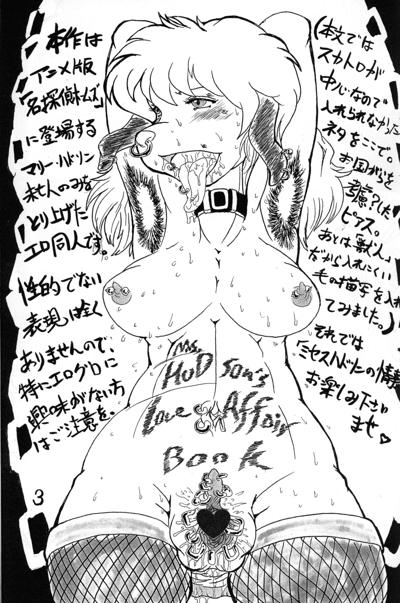 (本文では
スカトロが
中心なので
入れられなかった
ネタをここで。
お国がらを
ピアス。
あとは獣人
だから入れにくい
毛の描写を入れ
てみました。)
それでは
「ミセス・ハドソンの情事」
お楽しみ下さい
ませ♡
本作は
アニメ版
「名探偵ホームズ」
に登場する
マリー・ハドソン
未亡人のみを
とり上げた
エロ同人です。
性的でない
表現は全く
ありませんので、
特にエログロに
興味がない方
はご注意を。
Ms.
HuDson's
Love Affair
Book
3